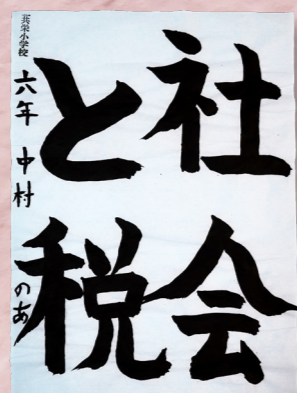 社会
と税
共栄小学校
六年 中村 のあ